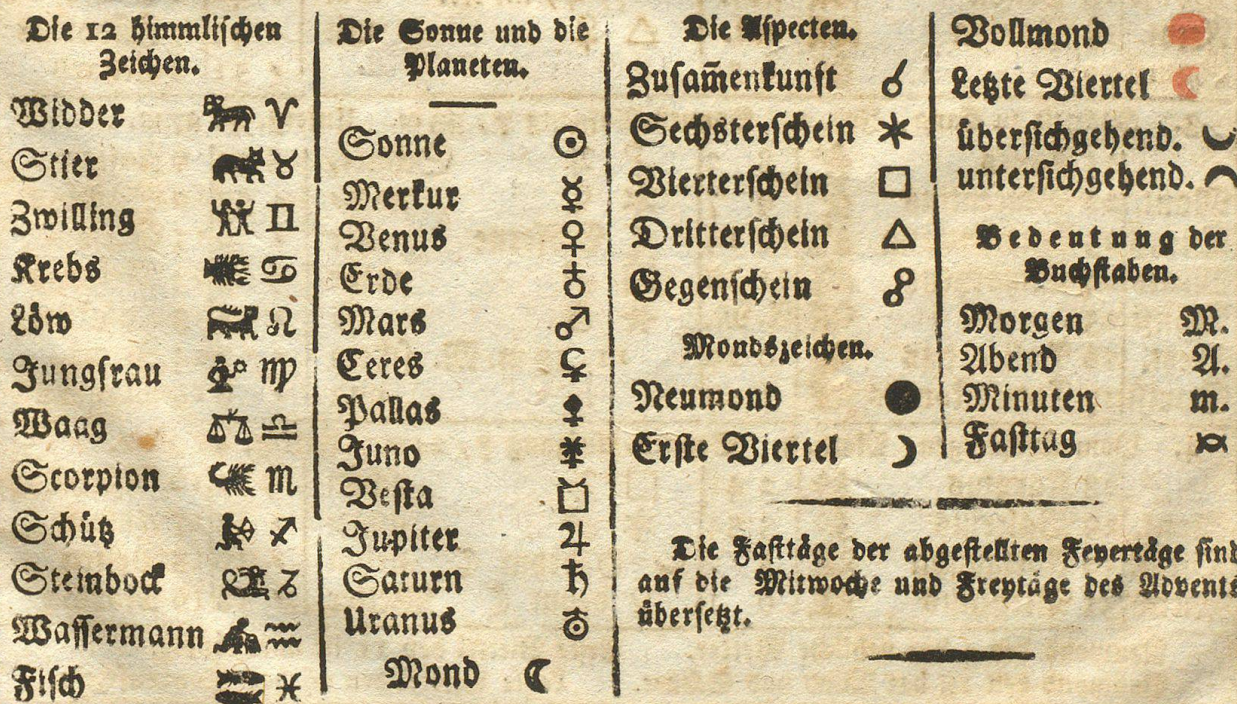 Die 12 himmlischen
Zeichen.
Widder ♈
Stier ♉
Zwilling ♊
Krebs ♋
Löw ♌
Jungfrau ♍
Waag ♎
Scorpion ♏
Schütz ♐
Steinbock ♑
Wassermann ♒
Fisch ♓
Die Sonne und die
Planeten.
Sonne ☉
Merkur ☿
Venus ♀
Erde ♁
Mars ♂
Ceres ⚳
Pallas ⚴
Juno ⚵
Vesta ⚶
Jupiter ♃
Saturn ♄
Uranus ⛢
Mond ☾
Die Aspecten.
Zusam̅enkunft ☌
Sechsterschein ⚹
Vierterschein □
Dritterschein △
Gegenschein ☍
Mondszeichen.
Neumond ●
Erste Viertel ☽
Vollmond
Letzte Viertel ☾
übersichgehend.
untersichgehend.
Bedeutung der
Buchstaben.
Morgen M.
Abend A.
Minuten m.
Fasttag
Die Fasttäge der abgestellten Feyertäge sind
auf die Mitwoche und Freytäge des Advents
übersetzt.